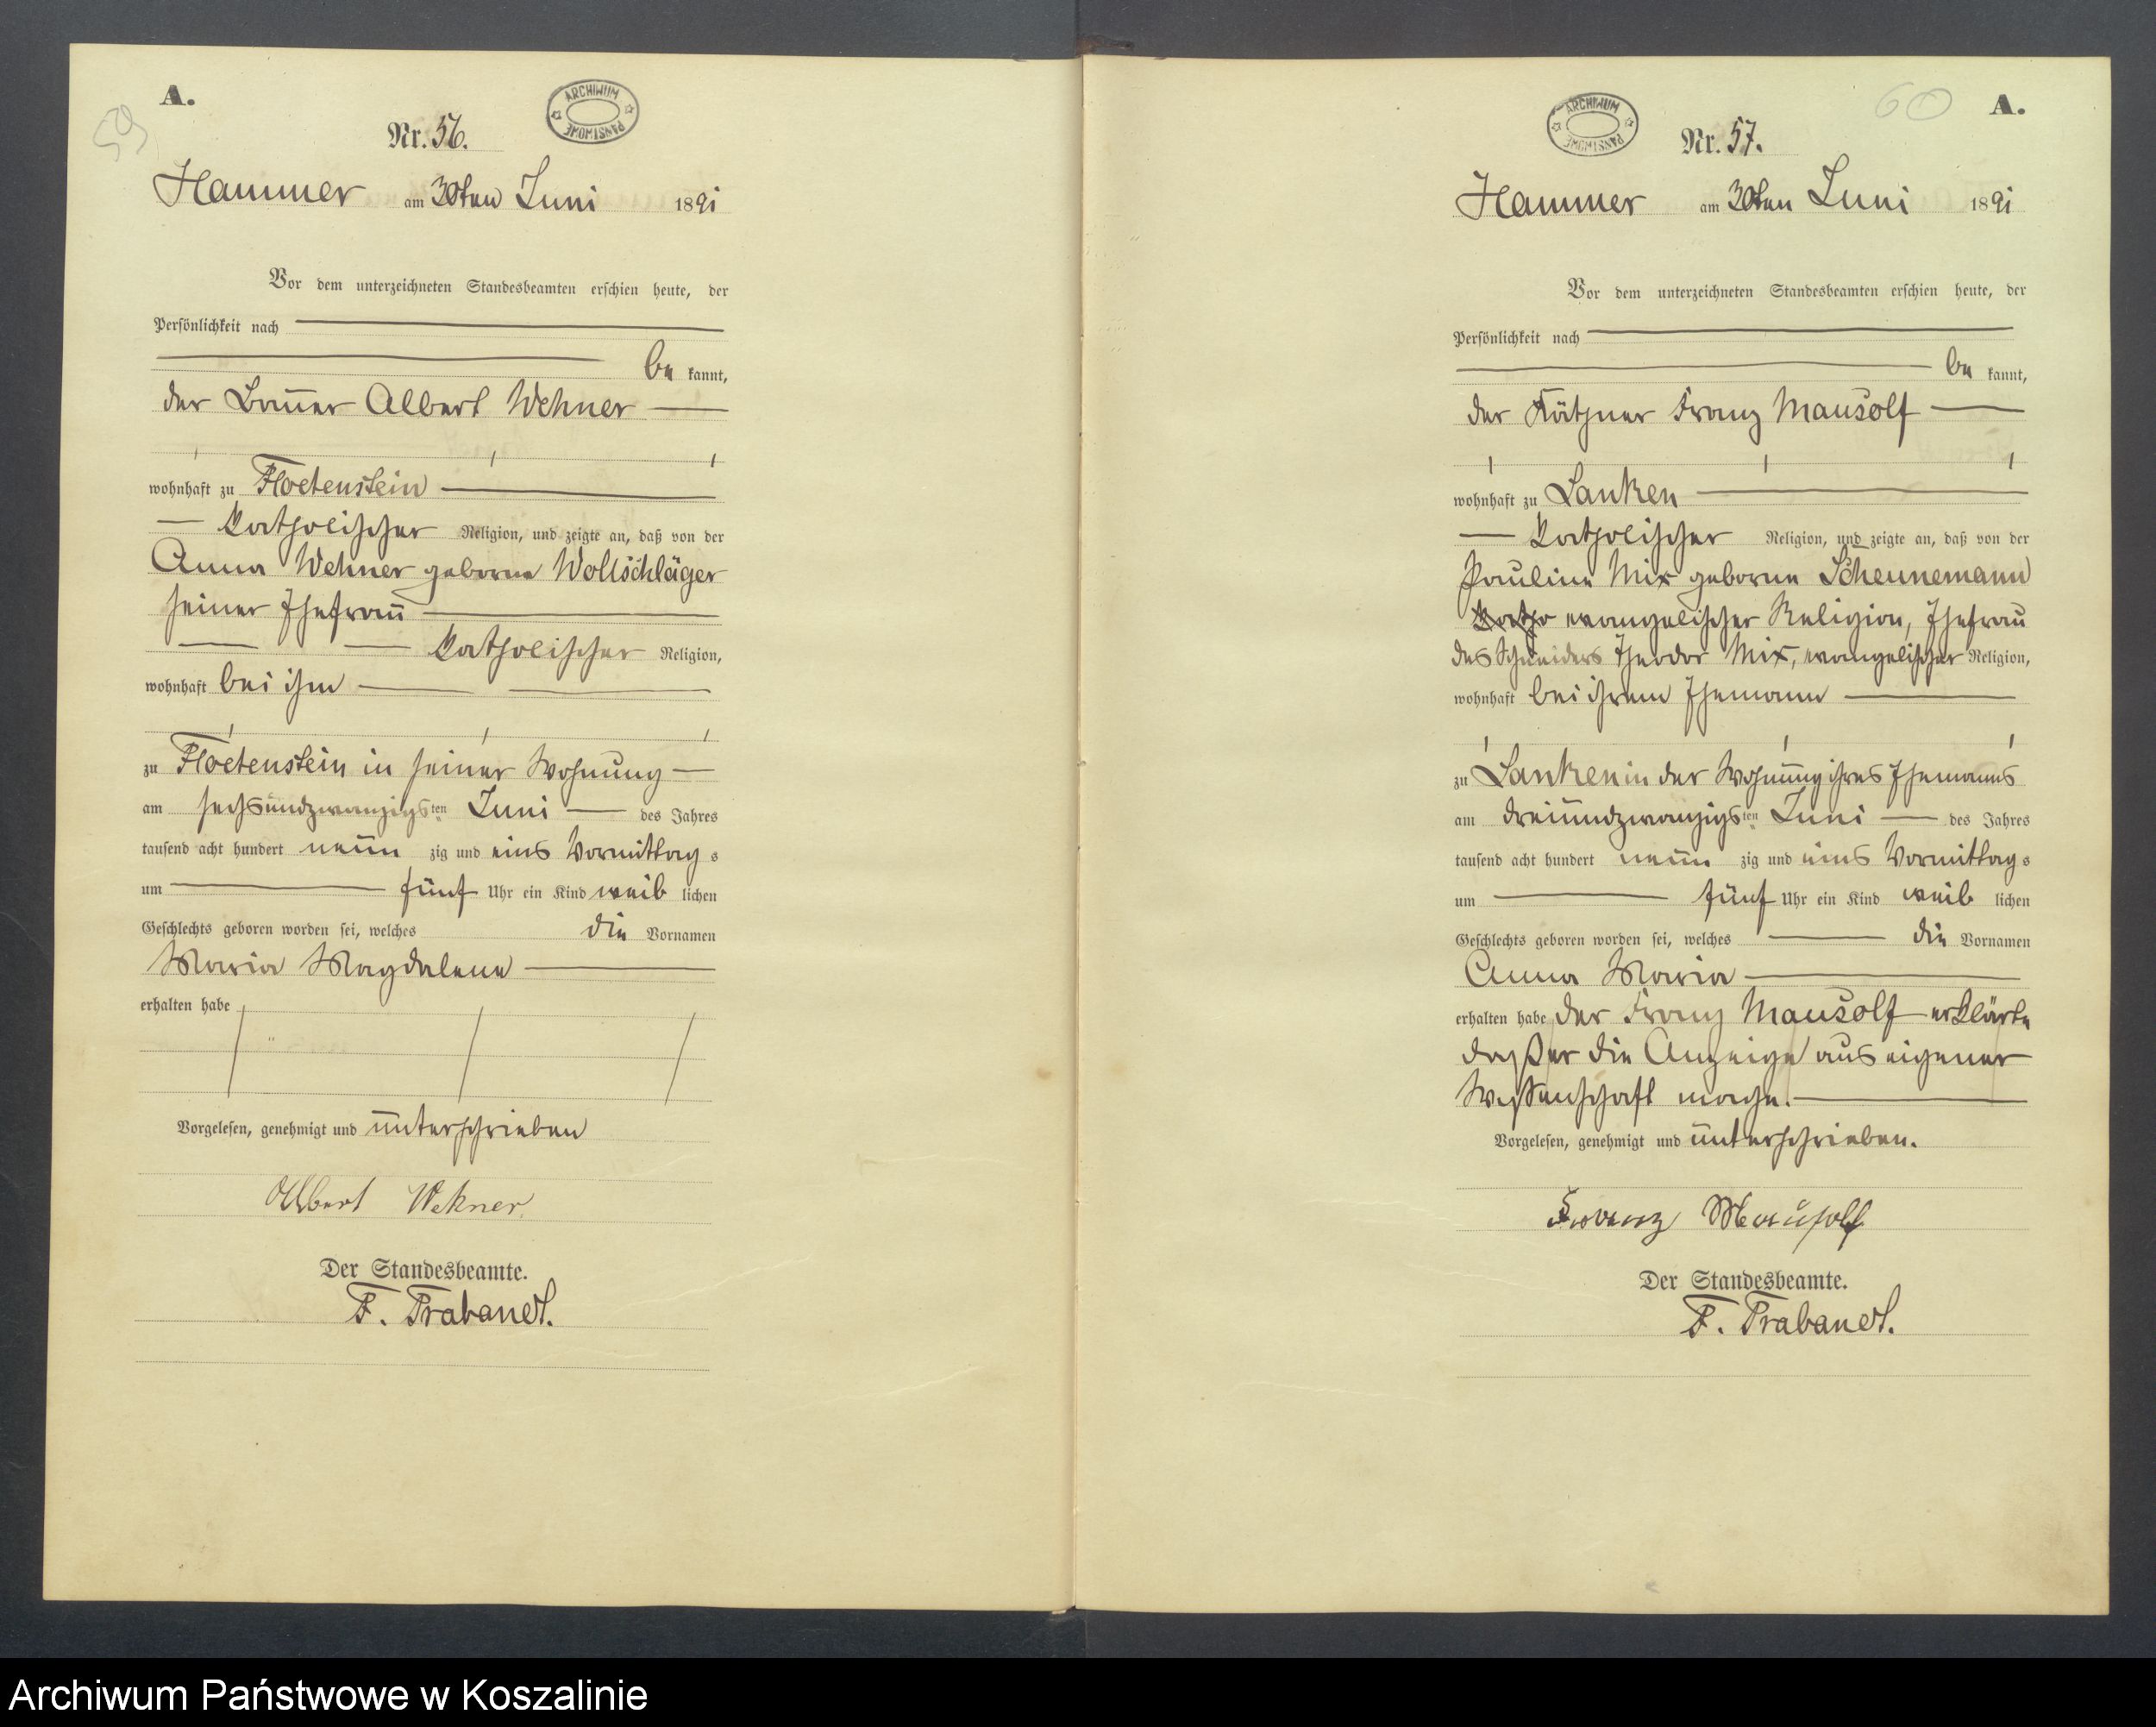 59
A.
ARCHIWUM PAŃSTWOWE
Nr. 56.
Hammer am 30ten Juni 1891
Vor dem unterzeichneten Standesbeamten erschien heute, der
Persönlichkeit nach
be kannt,
der Bauer Albert Wehner
wohnhaft zu Floetenstein
katholischer Religion, und zeigte an, daß von der
Anna Wehner geborne Wollschläger
seiner Ehefrau
katholischer Religion,
wohnhaft bei ihm
zu Floetenstein in seiner Wohnung
am sechsundzwanzigsten Juni des Jahres
tausend acht hundert neun zig und eins Vormittags
um fünf Uhr ein Kind weib lichen
Geschlechts geboren worden sei, welches die Vornamen
Maria Magdalene
erhalten habe
Vorgelesen, genehmigt und unterschrieben
Albert Wehner
Der Standesbeamte.
F. Prabandt.
60
A.
ARCHIWUM PAŃSTWOWE
Nr. 57.
Hammer am 30ten Juni 1891
Vor dem unterzeichneten Standesbeamten erschien heute, der
Persönlichkeit nach
be kannt,
der Käthner Franz Mausolf
wohnhaft zu Lanken
katholischer Religion, und zeigte an, daß von der
Pauline Mix geborne Scheunemann
katho evangelischer Religion, Ehefrau
des Schneiders Theodor Mix, evangelischer Religion,
wohnhaft bei ihrem Ehemann
zu Lanken in der Wohnung ihres Ehemanns
am dreiundzwanzigsten Juni des Jahres
tausend acht hundert neun zig und eins Vormittags
um fünf Uhr ein Kind weib lichen
Geschlechts geboren worden sei, welches die Vornamen
Anna Maria
erhalten habe der Franz Mausolf erklärte
daß er die Anzeige aus eigener
Wissenschaft mache.
Vorgelesen, genehmigt und unterschrieben.
Franz Mausolf
Der Standesbeamte.
F. Prabandt.
Archiwum Państwowe w Koszalinie